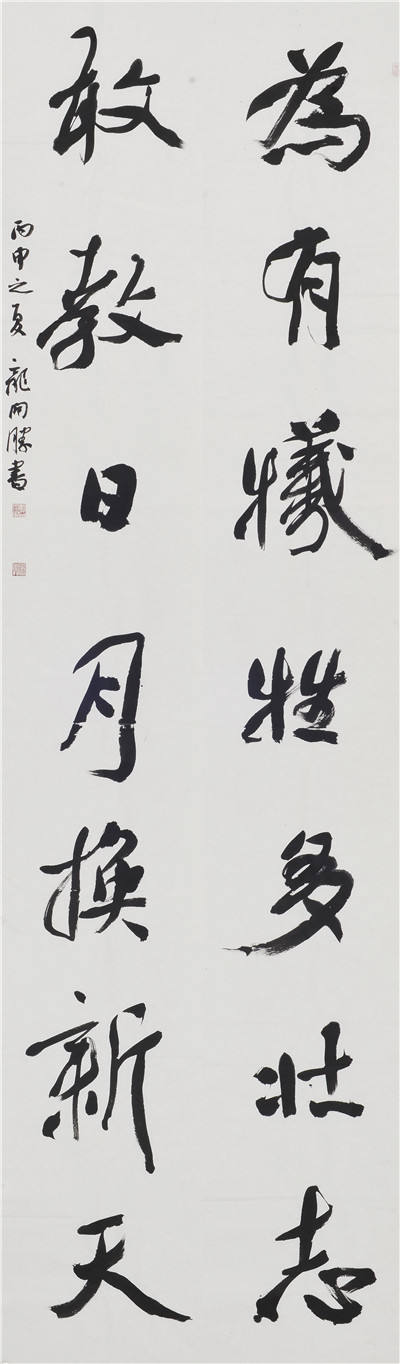 為有犧牲多壮志
敢教日月換新天
丙申之夏 龍開勝書